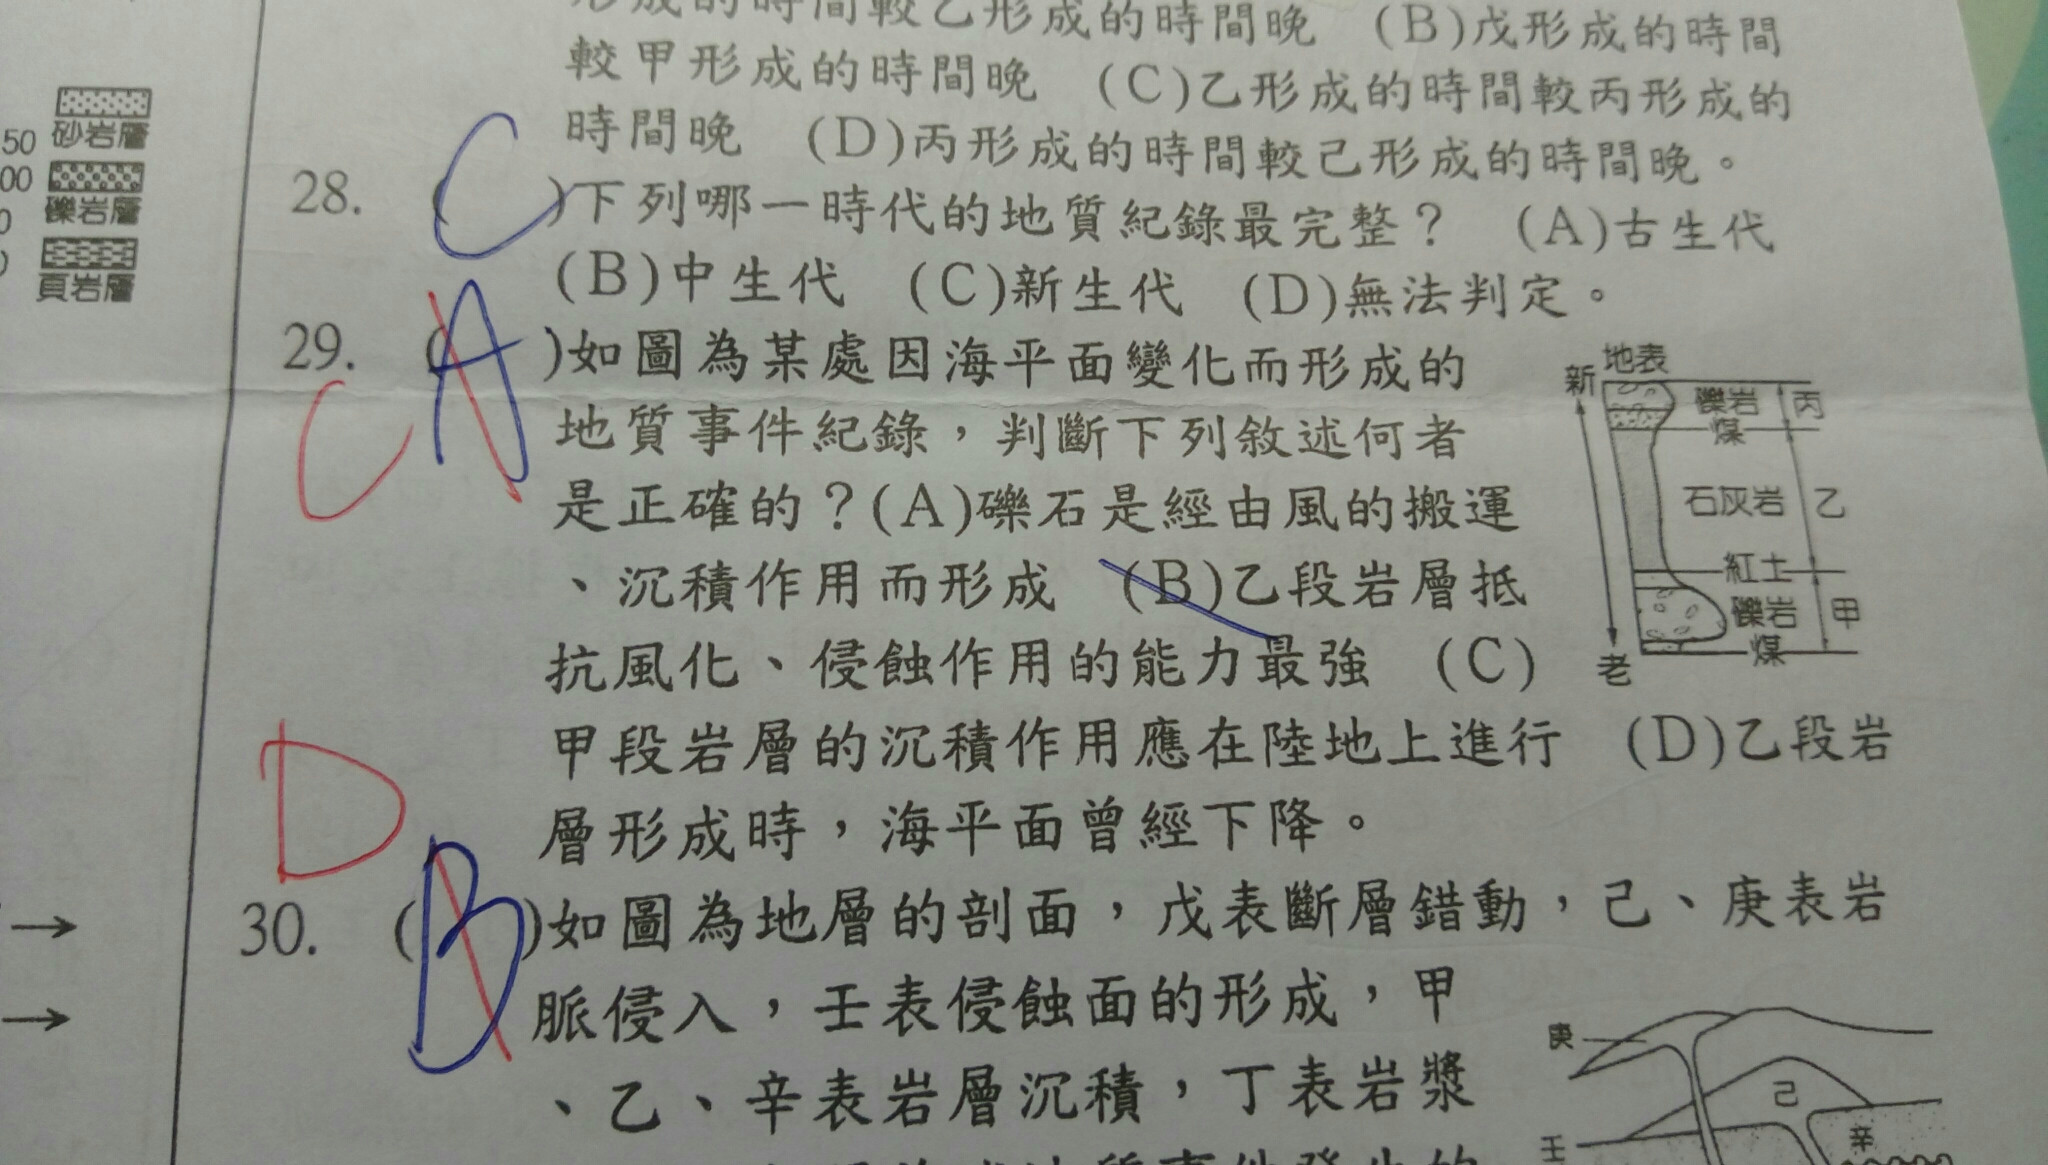 形成的時間較乙形成的時間晚 (B)戊形成的時間
較甲形成的時間晚 (C)乙形成的時間較丙形成的
時間晚 (D)丙形成的時間較己形成的時間晚。
28. (C)下列哪一時代的地質紀錄最完整? (A)古生代
(B)中生代 (C)新生代 (D)無法判定。
29. (A)如圖為某處因海平面變化而形成的
C
地質事件紀錄,判斷下列敘述何者
是正確的?(A)礫石是經由風的搬運
、沉積作用而形成 (B)乙段岩層抵
抗風化、侵蝕作用的能力最強 (C)
甲段岩層的沉積作用應在陸地上進行 (D)乙段岩
層形成時,海平面曾經下降。
D
30. (B)如圖為地層的剖面,戊表斷層錯動,己、庚表岩
脈侵入,壬表侵蝕面的形成,甲
、乙、辛表岩層沉積,丁表岩漿
50
砂岩層
00
礫岩層
0
頁岩層
地表
新
礫岩
丙
煤
石灰岩
乙
紅土
礫岩
甲
煤
老
庚
己
壬
辛